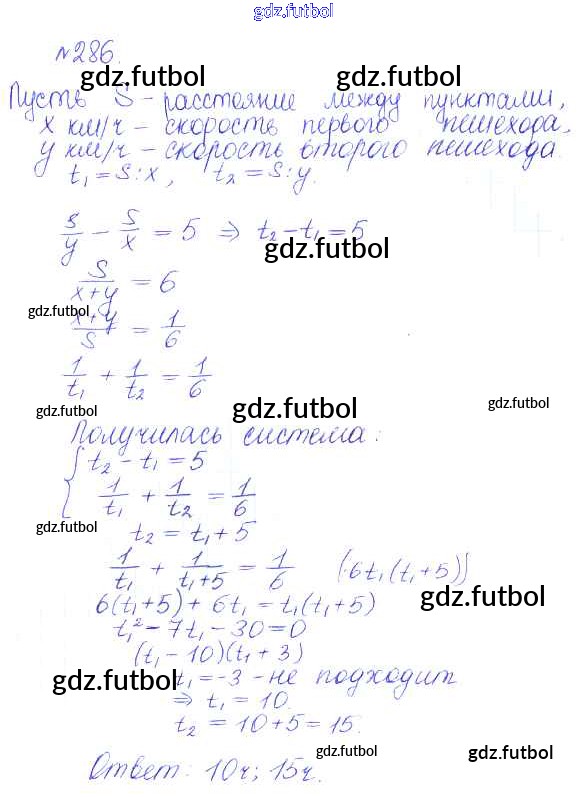 gdz.futbol
№286.
gdz.futbol gdz.futbol
Пусть S - расстояние между пунктами,
x км/ч - скорость первого пешехода,
y км/ч - скорость второго пешехода.
t₁ = S:x, t₂ = S:y.
S/y - S/x = 5 ⇒ t₂ - t₁ = 5
gdz.futbol
S/(x+y) = 6
gdz.futbol
(x+y)/S = 1/6
1/t₁ + 1/t₂ = 1/6
gdz.futbol gdz.futbol gdz.futbol
Получилась система:
{ t₂ - t₁ = 5
1/t₁ + 1/t₂ = 1/6
gdz.futbol
t₂ = t₁ + 5
1/t₁ + 1/(t₁+5) = 1/6 (·6t₁(t₁+5))
gdz.futbol
6(t₁+5) + 6t₁ = t₁(t₁+5)
t₁² - 7t₁ - 30 = 0
(t₁ - 10)(t₁ + 3)
gdz.futbol
t₁ = -3 - не подходит
⇒ t₁ = 10.
t₂ = 10 + 5 = 15.
gdz.futbol gdz.futbol
Ответ: 10ч; 15ч.